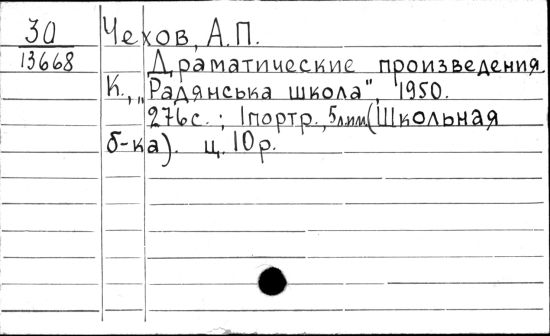 30
13668
Чехов, А.П.
Драматические произведения.
К., „Радянська школа", 1950.
276с.; 1портр., 5л.илл. (Школьная
б-ка). ц. 10р.